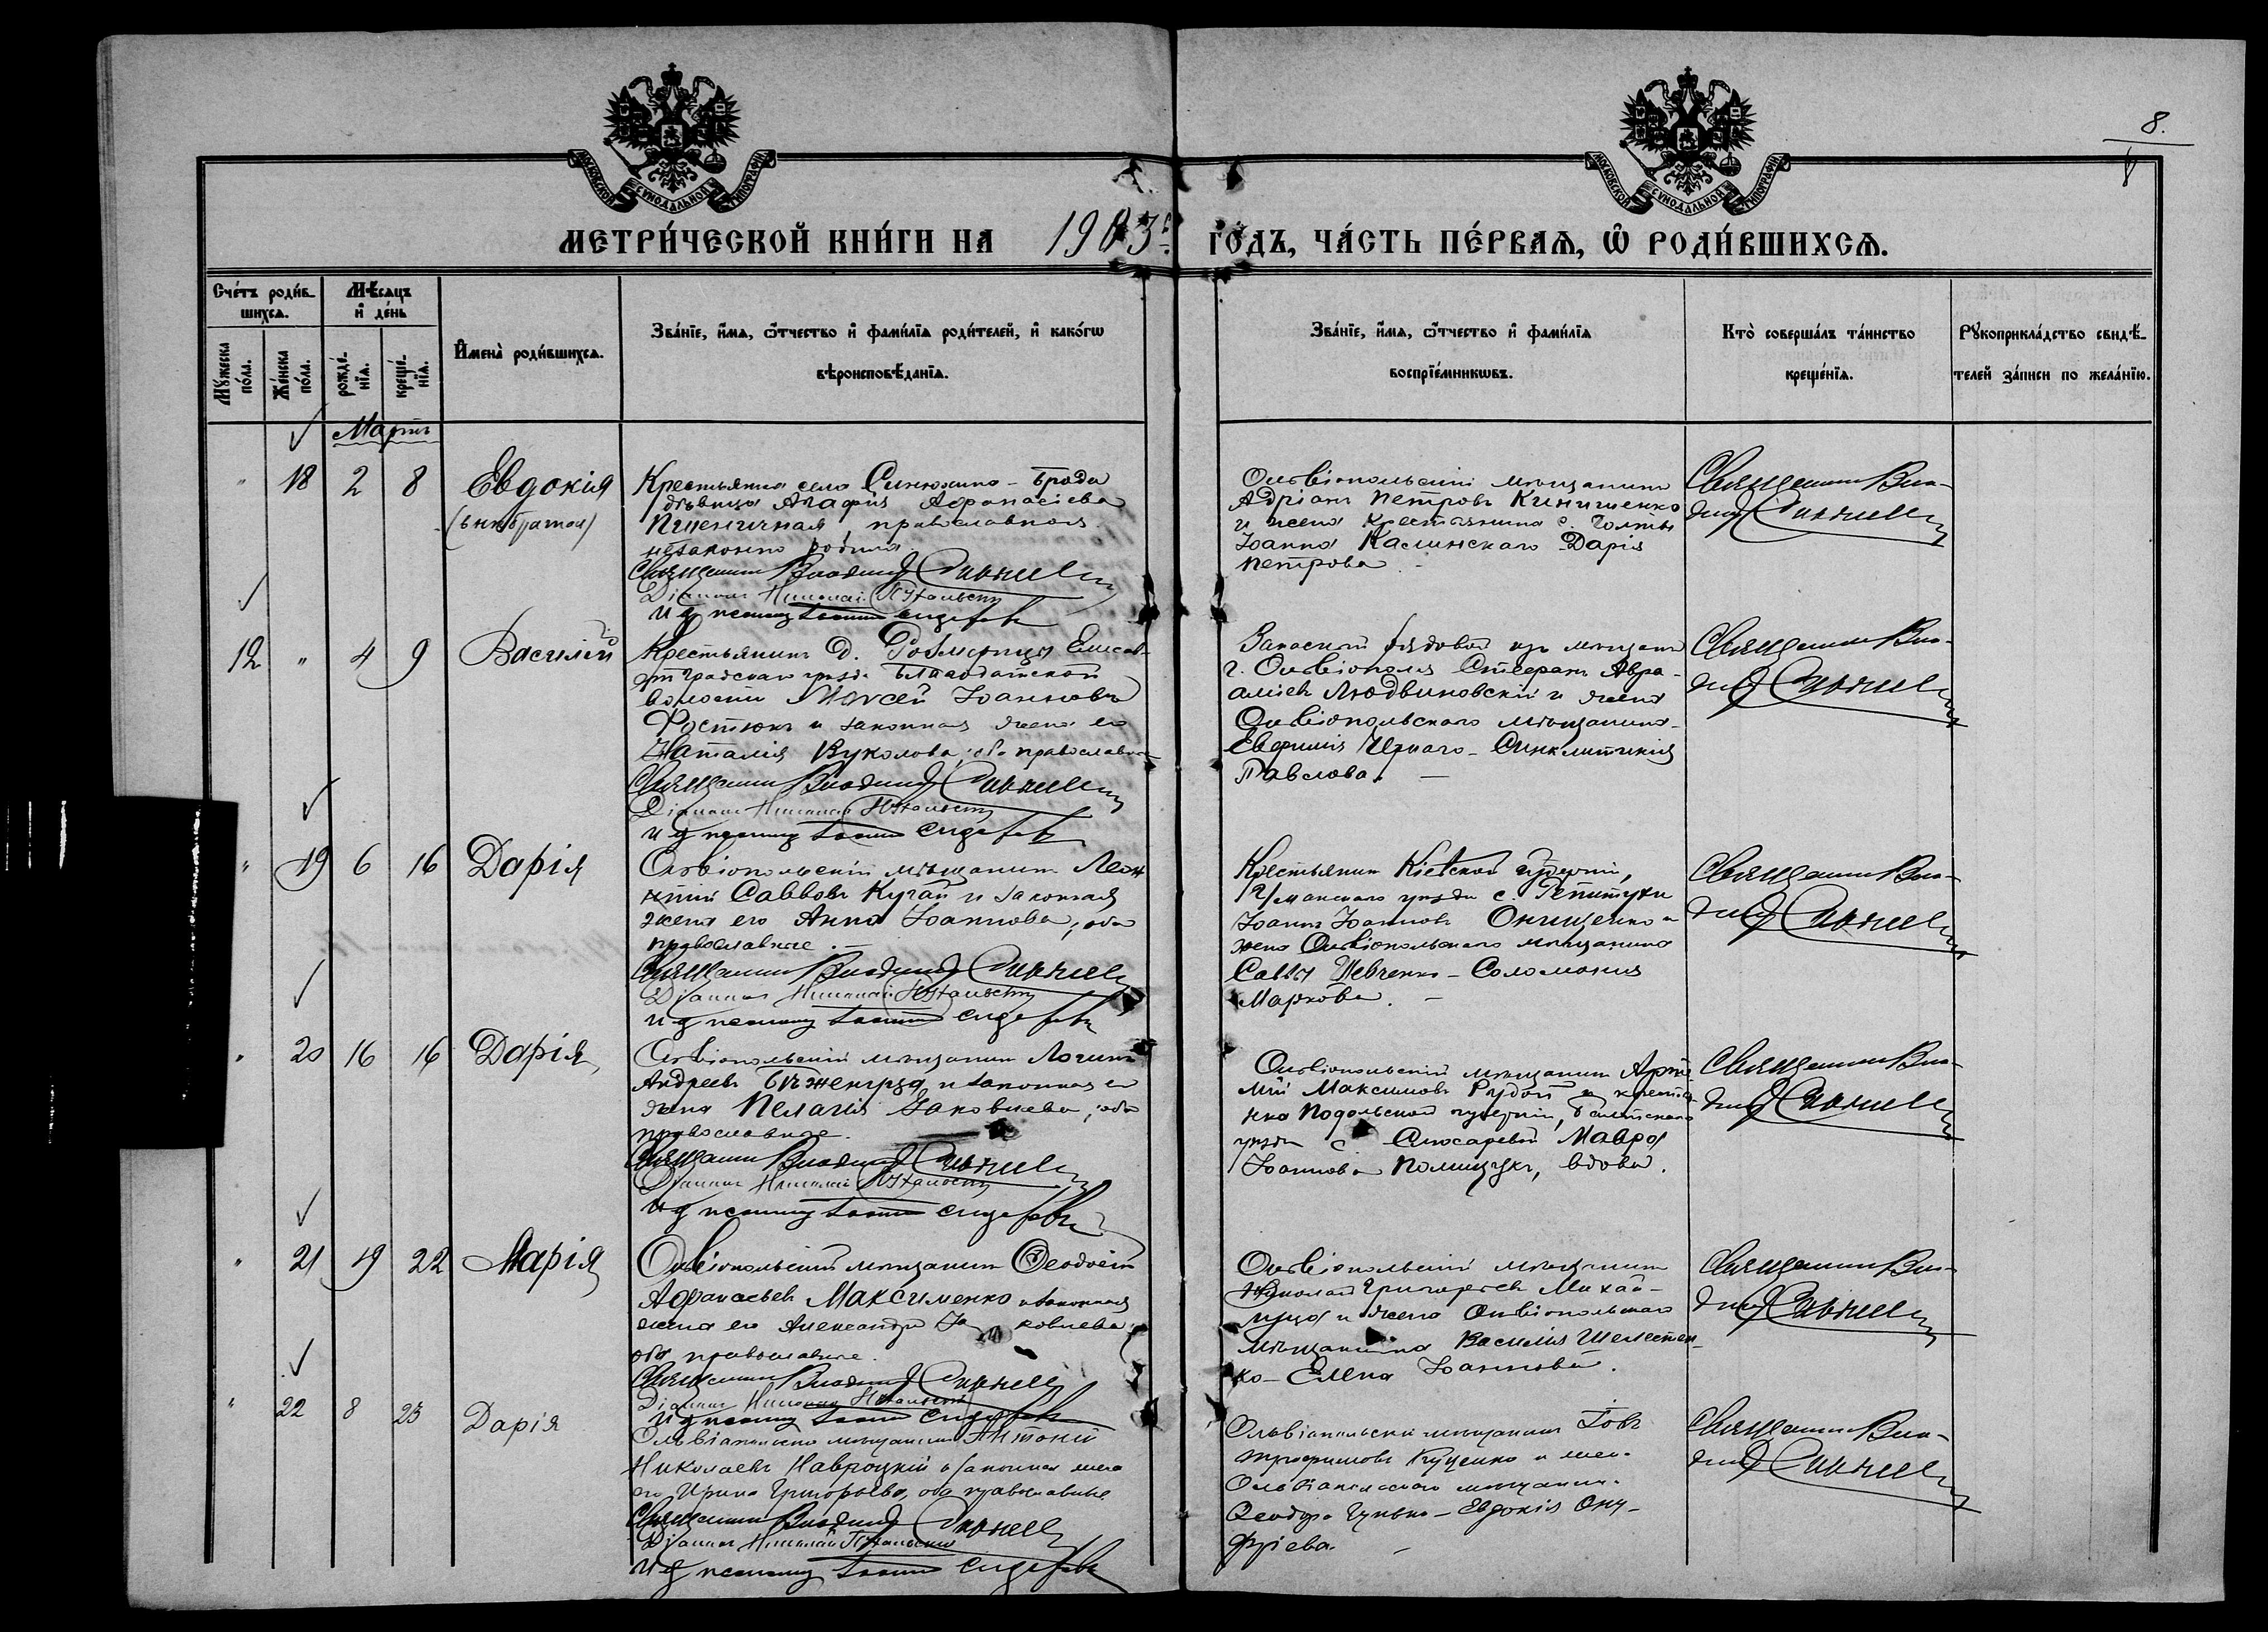 МОСКОВСКОЙ СУНОДАЛЬНОЙ ТИПОГРАФІИ
МОСКОВСКОЙ СУНОДАЛЬНОЙ ТИПОГРАФІИ
8.
МЕТРИ́ЧЕСКОЙ КНИ́ГИ НА 1903 ГО́ДЪ, ЧА́СТЬ ПЕ́РВАѦ, Ѽ РОДИ́ВШИХСѦ.
Сче́тъ роди́в-
шихсѧ.
Мѣ́сѧцъ
и҆ де́нь
Мꙋ́жеска
по́ла.
Же́нска
по́ла.
рожде́-
нїѧ.
креще́-
нїѧ.
И҆мена̀ роди́вшихсѧ.
Зва́нїе, и҆́мѧ, ѻ҆́тчество и҆ фами́лїѧ роди́телей, и҆ како́гѡ
вѣроисповѣ́данїѧ.
Зва́нїе, и҆́мѧ, ѻ҆́тчество и҆ фами́лїѧ
воспрїе́мникѡвъ.
Кто̀ соверша́лъ та́инство
креще́нїѧ.
Рꙋкоприкла́дство свидѣ́-
телей за́писи по жела́нїю.
Мартъ
" 18 2 8 Евдокія
(внѣбрачная)
Крестьянка села Синюхина-Брода
дѣвица Агафія Афанасіева
Пшеничная православная
незаконно родила
Священникъ Владимір
Діаконъ Николай
И д псаломщ Сидоровъ
Ольвіопольскій мѣщанинъ
Адріанъ Петровъ Киниченко
и жена крестьянина с. Голты
Іоанна Калинскаго Дарія
Петрова. -
Священникъ Вла-
димір
12 " 4 9 Василій
Крестьянинъ д. Елисав-
градскаго уѣзда Благодатской
волости Моисей Іоанновъ
Фостюкъ и законная жена его
Наталія Вуколова, оба православн
Священникъ Владимір
Діаконъ Николай
И д псаломщ Сидоровъ
Запасной рядовой изъ мѣщанъ
г. Ольвіополя Стефанъ Авра-
аміевъ Людвиновскій и жена
Ольвіопольскаго мѣщанина
Евфимія Чернаго - Синклитикія
Павлова. -
Священникъ Вла-
димір
" 19 6 16 Дарія
Ольвіопольскій мѣщанинъ Леон
тій Савовъ Кугай и законная
жена его Анна Іоаннова, оба
православные. -
Священникъ Владимір
Діаконъ Николай
И д псаломщ Сидоровъ
Крестьянинъ Кіевской губерніи,
Уманскаго уѣзда с.
Іоаннъ Іоанновъ Онищенко и
жена Ольвіопольскаго мѣщанина
Саввы Шевченко - Соломонія
Маркова. -
Священникъ Вла-
димір
" 20 16 16 Дарія
Ольвіопольскій мѣщанинъ Логинъ
Андреевъ и законная его
жена Пелагія Іаковлева, оба
православные.
Священникъ Владимір
Діаконъ Николай
И д псаломщ Сидоровъ
Ольвіопольскій мѣщанинъ Арте-
мій Максимовъ Рудой и крестьян
ка Подольской губерніи, Балтскаго
уѣзда с. Слюсаревой Мавра
Іоаннова Полищукъ, вдова.
Священникъ Вла-
димір
" 21 19 22 Марія
Ольвіопольскій мѣщанинъ Ѳеодосій
Афанасьевъ Максименко и законная
жена его Александра Іаковлева
оба православные.
Священникъ Владимір
Діаконъ Николай
И д псаломщ Сидоровъ
Ольвіопольскій мѣщанинъ
Николай Григорьевъ Михай-
луца и жена Ольвіопольскаго
мѣщанина Василія Шелестен-
ко - Елена Іоаннова.
Священникъ Вла-
димір
" 22 8 23 Дарія
Ольвіопольскій мѣщанинъ Антоній
Николаевъ Навроцкій и законная жена
его Ирина Григорьева, оба православные
Священникъ Владимір
Діаконъ Николай
И д псаломщ Сидоровъ
Ольвіопольскій мѣщанинъ Іовъ
Трофимовъ Куценко и жен.
Ольвіопольскаго мѣщанин.
Ѳеодора Гунько - Евдокія Ону-
фріева. -
Священникъ Вла-
димір